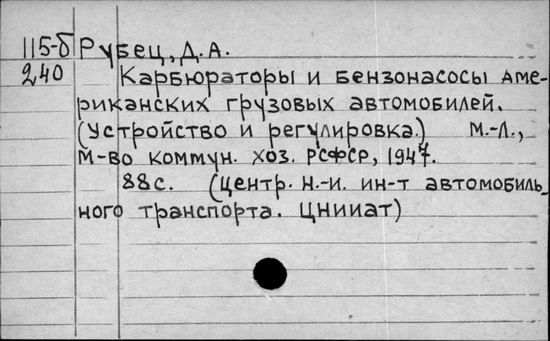 115-б Рубец, Д.А.
240 Карбюраторы и бензонасосы аме-
риканских грузовых автомобилей.
(Устройство и регулировка.) М.-Л.,
М-во коммун. хоз. РСФСР, 1947.
88с. (Центр. н.-и. ин-т автомобиль-
ного транспорта. ЦНИИАТ)